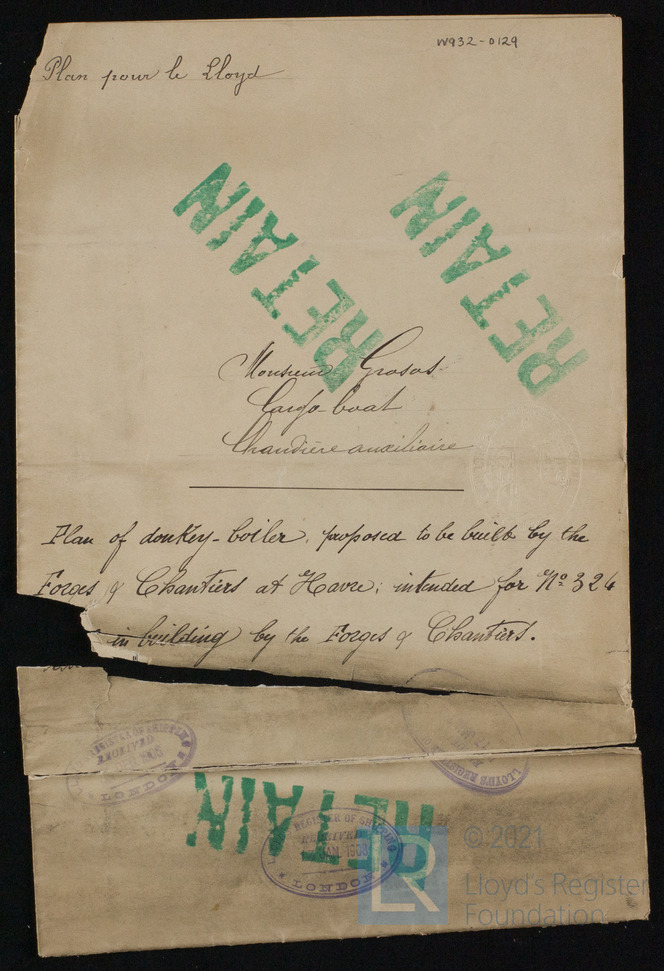 W932-0129
Plan pour le Lloyd
RETAIN
RETAIN
Monsieur Grosos
Cargo-boat
Chaudière auxiliaire
Plan of donkey-boiler, proposed to be built by the
Forges & Chantiers at Havre; intended for Nº 324
in building by the Forges & Chantiers.
REGISTER OF SHIPPING
RECEIVED
LONDON
LLOYD'S REGISTER
RETAIN
REGISTER OF SHIPPING
RECEIVED
LONDON
LR
© 2021
Lloyd's Register
Foundation